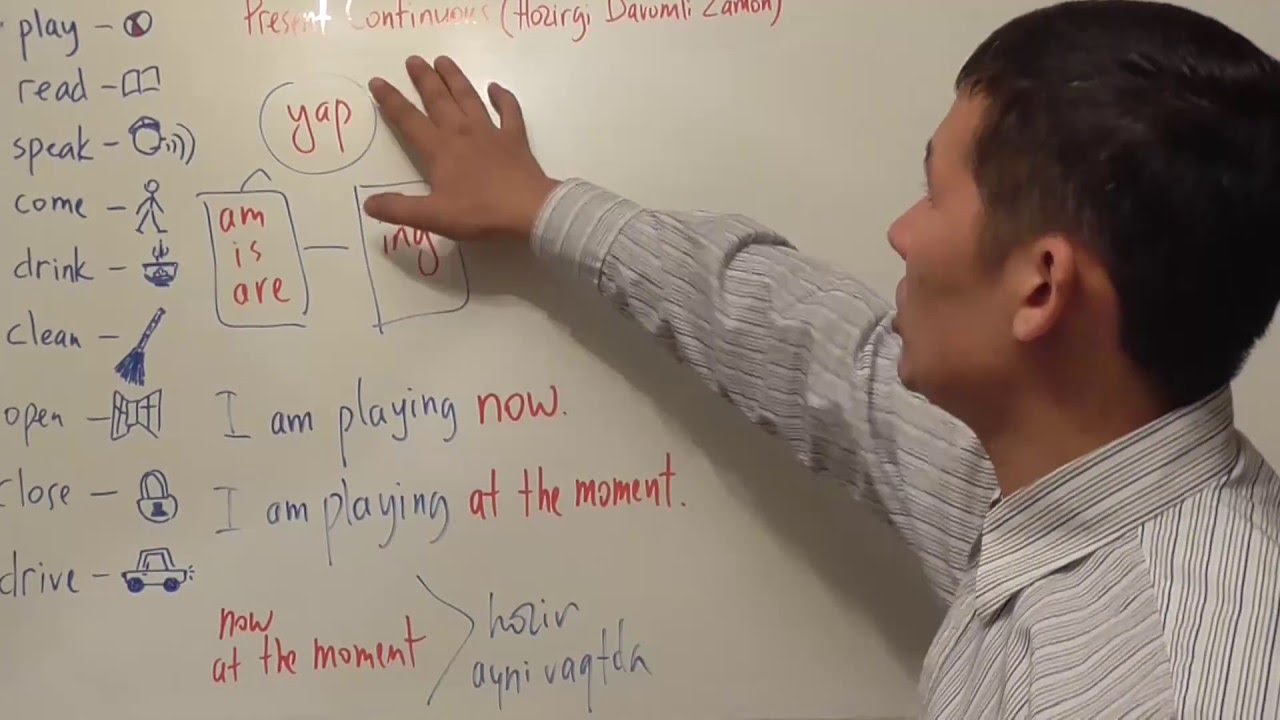 Present Continuous (Hozirgi Davomli Zamon)
play -
read -
speak -
come -
drink -
clean -
open -
close -
drive -
yap
am
is
are
ing
I am playing now.
I am playing at the moment.
now
at the moment
hozir
ayni vaqtda